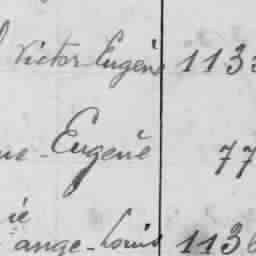 Victor Eugène 113
ne-Eugène 77
ie
ange-Louis 113